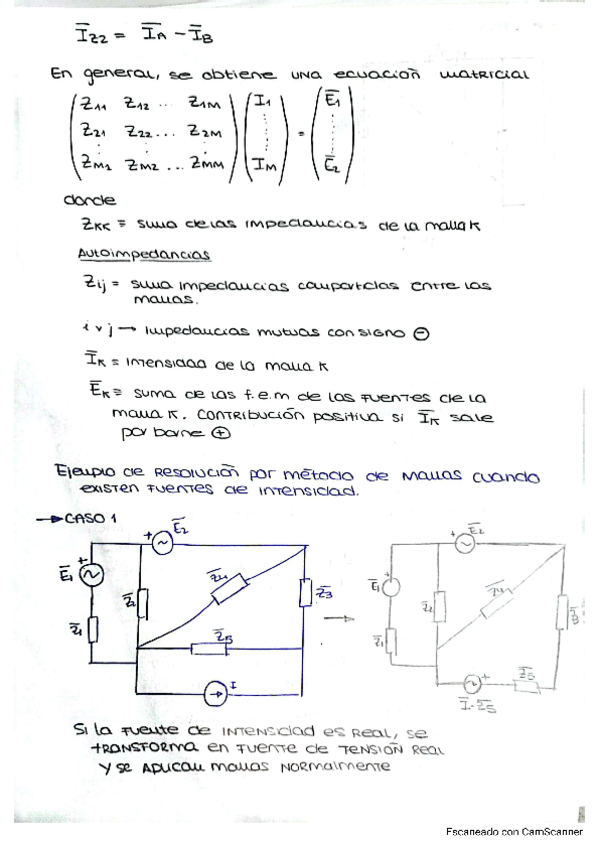 I̅Z2 = I̅A - I̅B
En general, se obtiene una ecuación matricial
Z11 Z12 ... Z1M I1 E̅1
Z21 Z22 ... Z2M =
ZM1 ZM2 ... ZMM IM E̅2
donde
ZKK = suma de las impedancias de la malla K
Autoimpedancias
Zij = suma impedancias compartidas entre las
mallas.
i y j → impedancias mutuas con signo ⊖
I̅K = intensidad de la malla K
E̅K = suma de las f.e.m de las fuentes de la
malla K. Contribución positiva si I̅K sale
por borne ⊕
Ejemplo de resolución por método de mallas cuando
existen fuentes de intensidad.
→ CASO 1
+ E̅2
+ E̅1
Z̅1
Z̅2
Z̅4
Z̅3
Z̅5
I
→
+ E̅2
E̅1
Z̅1
Z̅2
Z̅4
Z̅3
+
Z̅5
I̅·Z̅5
Si la fuente de intensidad es real, se
transforma en fuente de tensión real
y se aplican mallas normalmente
Escaneado con CamScanner